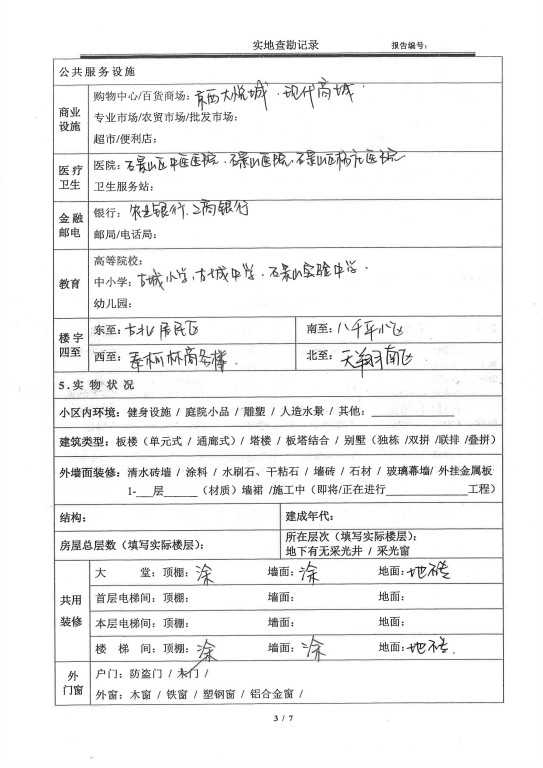 实地查勘记录 报告编号:
公共服务设施
商业设施
购物中心/百货商场: 京西大悦城、现代商城
专业市场/农贸市场/批发市场:
超市/便利店:
医疗卫生
医院: 石景山区中医医院、石景山医院、石景山区 医院
卫生服务站:
金融邮电
银行: 农业银行、工商银行
邮局/电话局:
教育
高等院校:
中小学: 古城小学、古城中学、石景山实验中学.
幼儿园:
楼宇四至
东至: 古北居民区 南至: 八千平小区
西至: 泰柯林商务楼 北至: 天翔南区
5.实物状况
小区内环境: 健身设施 / 庭院小品 / 雕塑 / 人造水景 / 其他:
建筑类型: 板楼（单元式 / 通廊式）/ 塔楼 / 板塔结合 / 别墅（独栋 /双拼 /联排 /叠拼）
外墙面装修: 清水砖墙 / 涂料 / 水刷石、干粘石 / 墙砖 / 石材 / 玻璃幕墙/ 外挂金属板
1-___层______（材质）墙裙 /施工中（即将/正在进行__________工程）
结构: 建成年代:
房屋总层数（填写实际楼层）: 所在层次（填写实际楼层）:
地下有无采光井 / 采光窗
共用装修
大堂: 顶棚: 涂 墙面: 涂 地面: 地砖
首层电梯间: 顶棚: 墙面: 地面:
本层电梯间: 顶棚: 墙面: 地面:
楼梯间: 顶棚: 涂 墙面: 涂 地面: 地砖.
外门窗
户门: 防盗门 / 木门 /
外窗: 木窗 / 铁窗 / 塑钢窗 / 铝合金窗 /
3 / 7